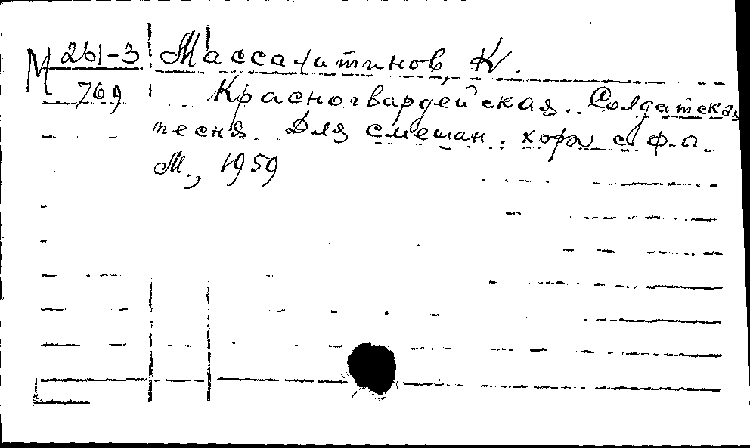 М 261-3 Массалитинов, К.
769 Красногвардейская. Солдатская
песня. Для смешан. хора с ф.п.
М., 1959